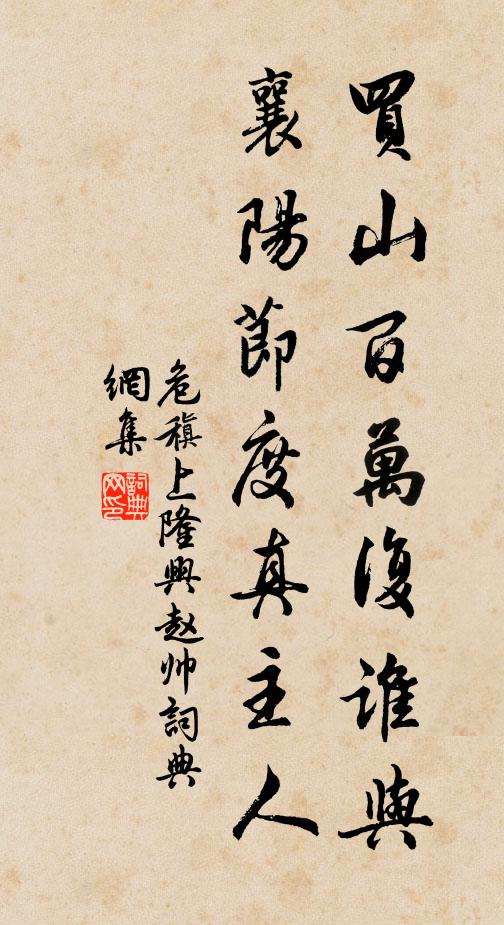 買山百萬復誰與
襄陽節度真主人
危稹上隆興赵帅詞典
網集
詞典
网印